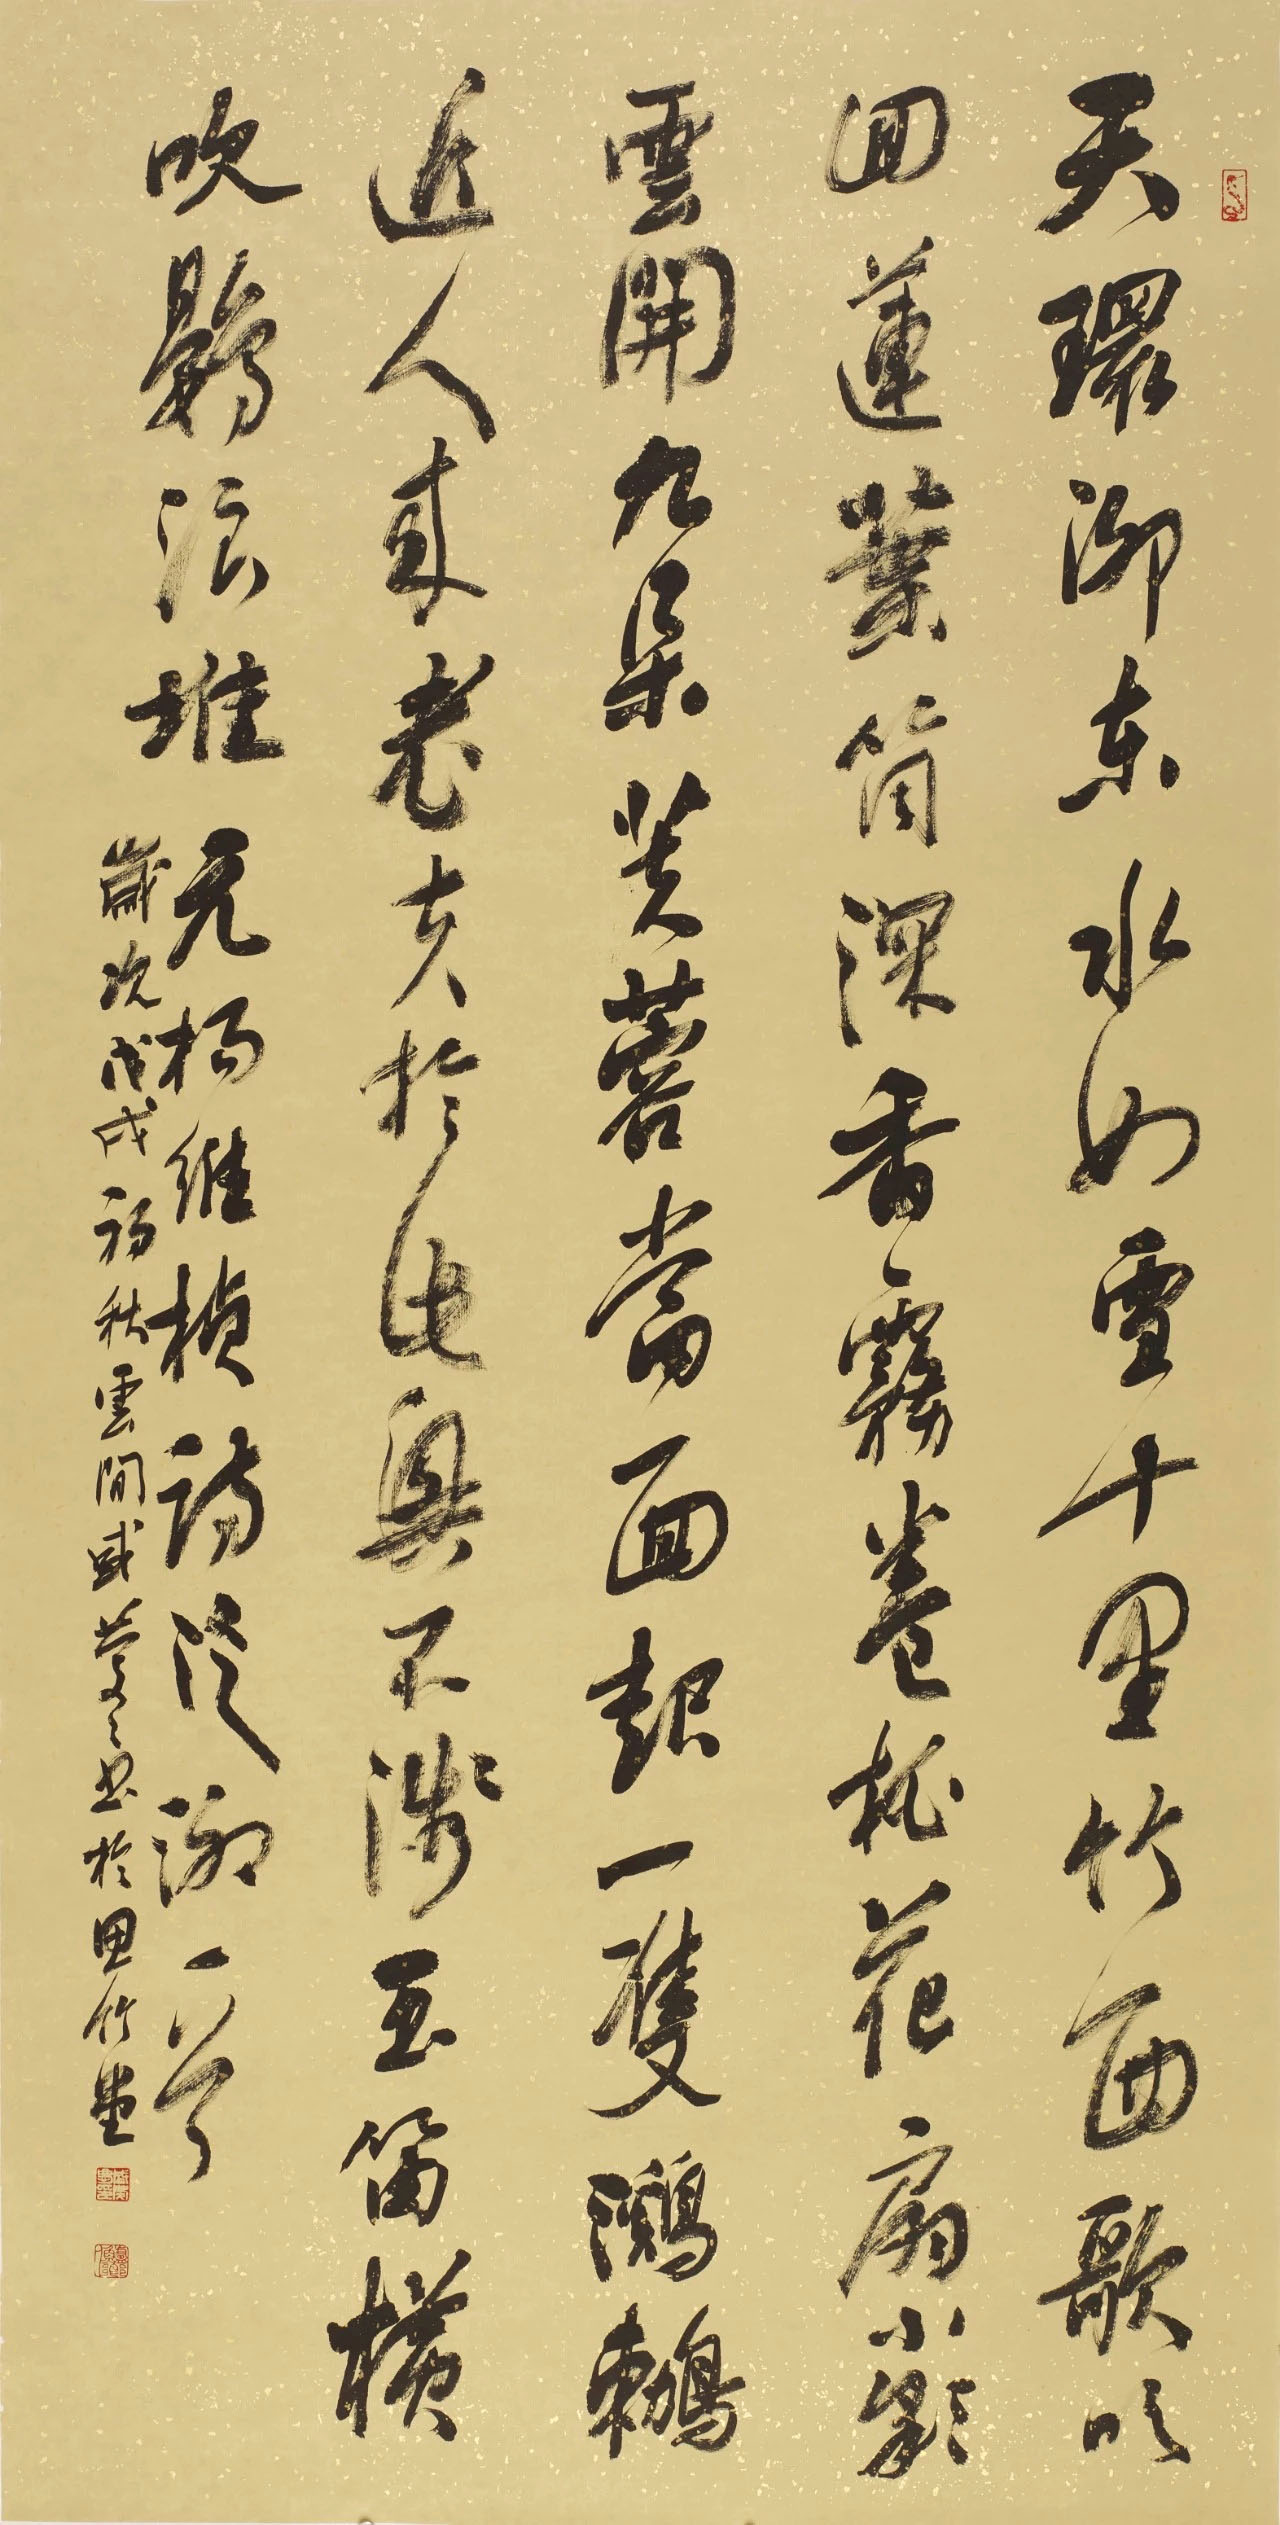 天環泖東水如雪十里竹西歌吹
回蓮葉筒深香霧卷桃花扇小彩
雲開九朵芙蓉當面起一雙鸂鶒
近人來老夫於此興不淺玉笛橫
吹鷃浪堆 元楊維楨詩泖一首
歲次戊戌初秋雲間盛慶書於思竹堂